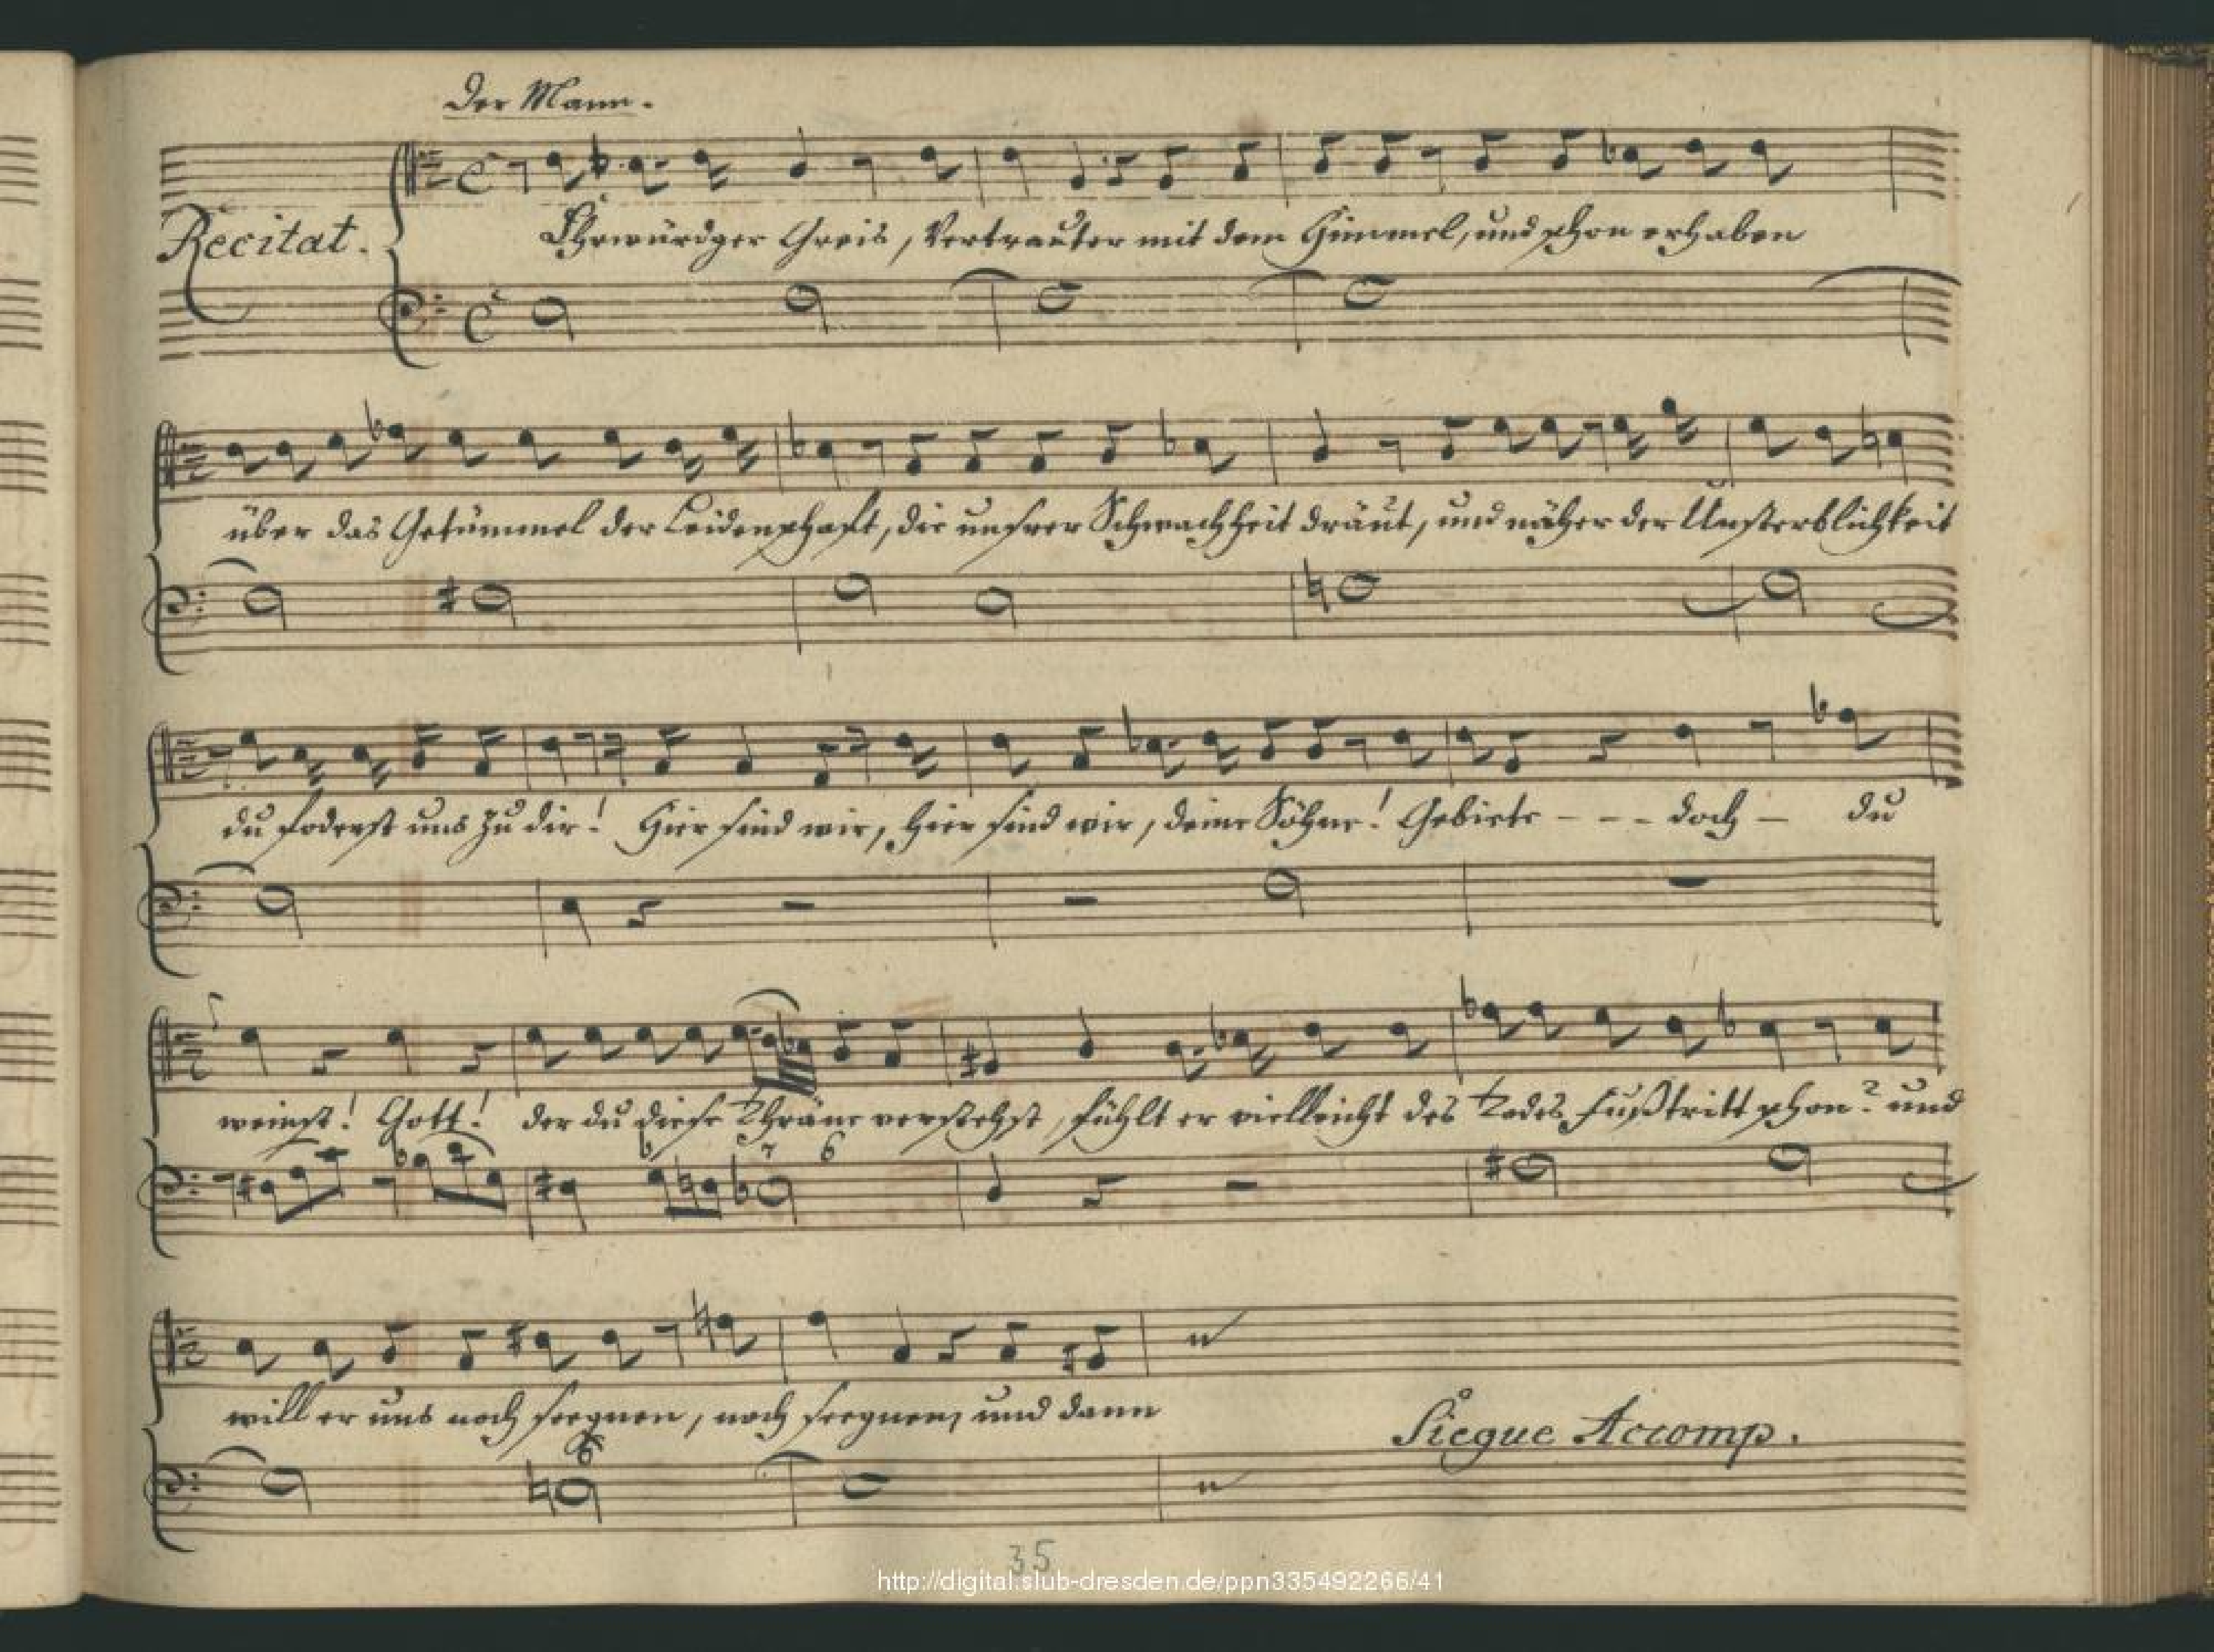 Der Mann.
Recitat.
Ehrwürdger Greis, Vertrauter mit dem Himmel, und schon erhaben
über das Getümmel der Leidenschaft, die unsrer Schwachheit dräut, und näher der Unsterblichkeit
du foderst uns zu dir! Hier sind wir, hier sind wir, deine Söhne! Gebiete - - - doch - du
weinst! Gott! der du diese Thräne verstehst, fühlt er vielleicht des Todes Fußtritt schon? und
will er uns noch seegnen, noch seegnen, und dann
Siegue Accomp.
35
http://digital.slub-dresden.de/ppn335492266/41